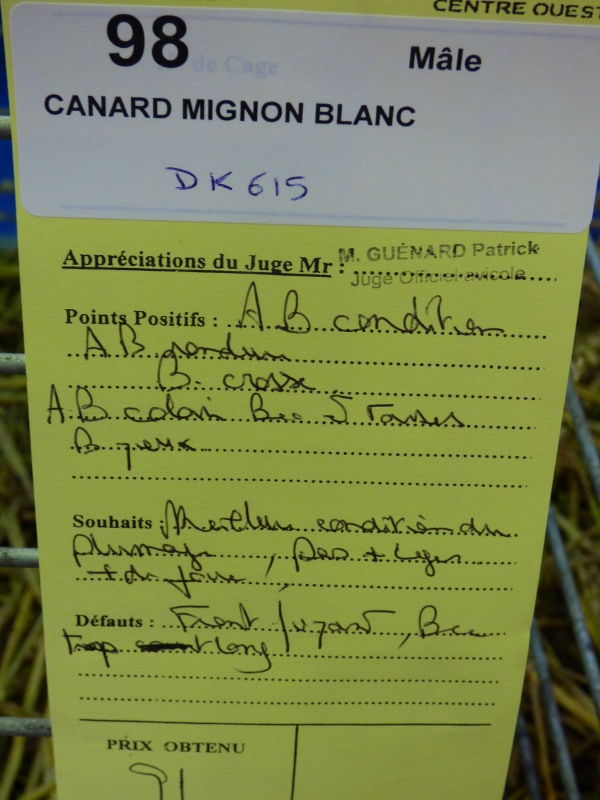 CENTRE OUEST
98 de Cage Mâle
CANARD MIGNON BLANC
DK 615
Appréciations du Juge Mr : M. GUÉNARD Patrick
Juge Officiel avicole
Points Positifs : A.B condition
A B rondeur
B. crosse
A.B coloris Bec & Tarses
B yeux
Souhaits : Meilleure condition du
plumage, Dos + large
+ de joue
Défauts : Front fuyant, Bec
trop long
PRIX OBTENU
91